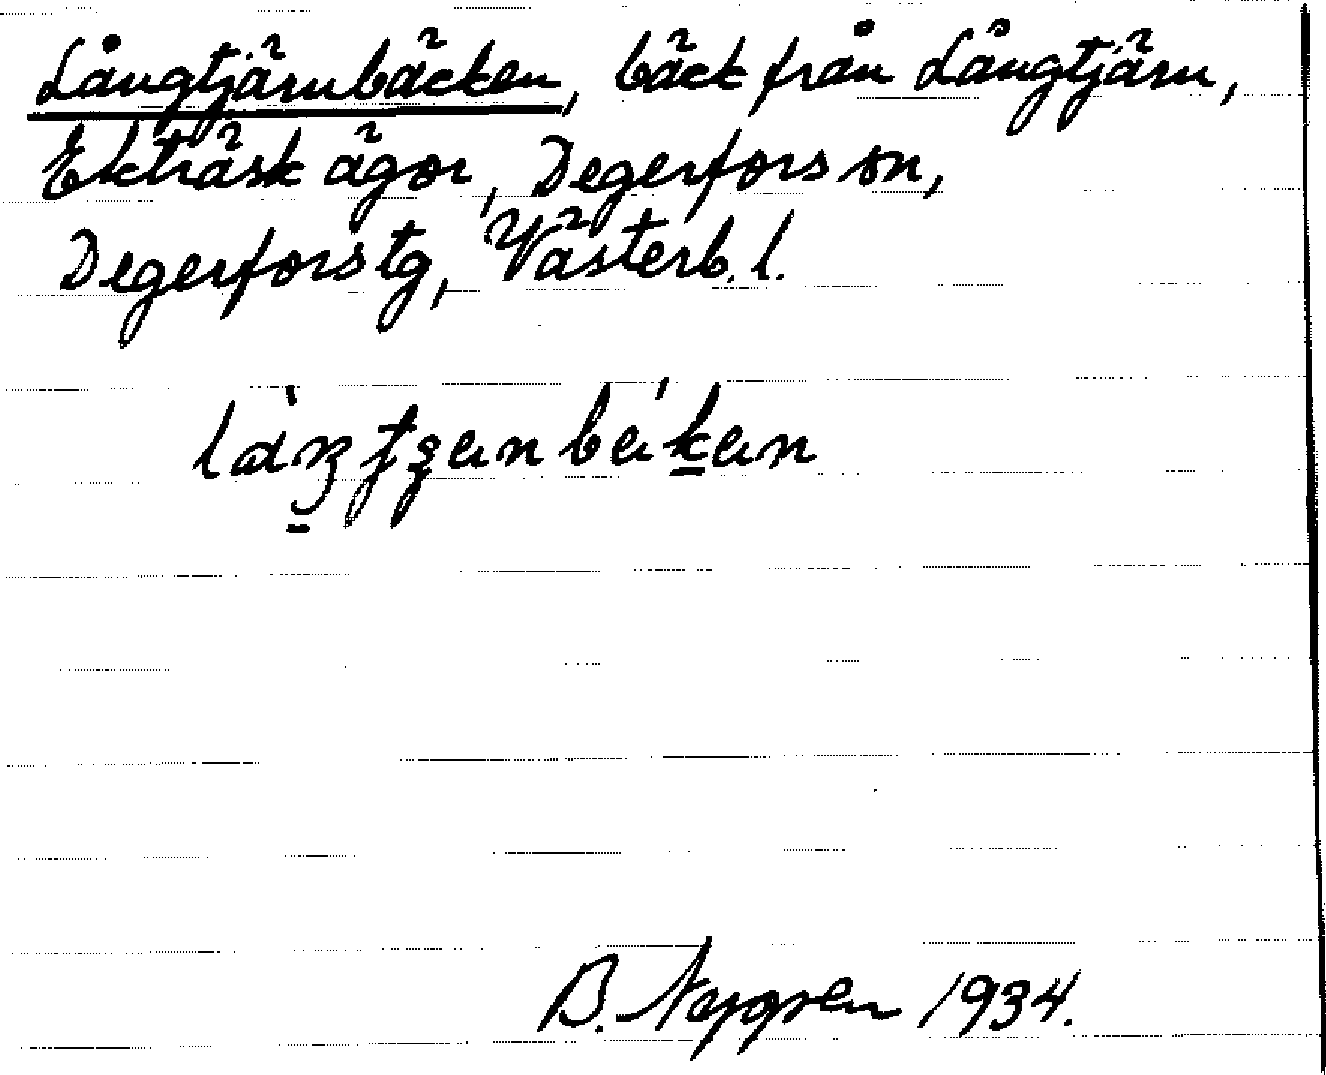 Långtjärnbäcken, bäck från Långtjärn,
Ekträsk ägor, Degerfors sn,
Degerfors tg, Västerb. l.
B. Nygren 1934.